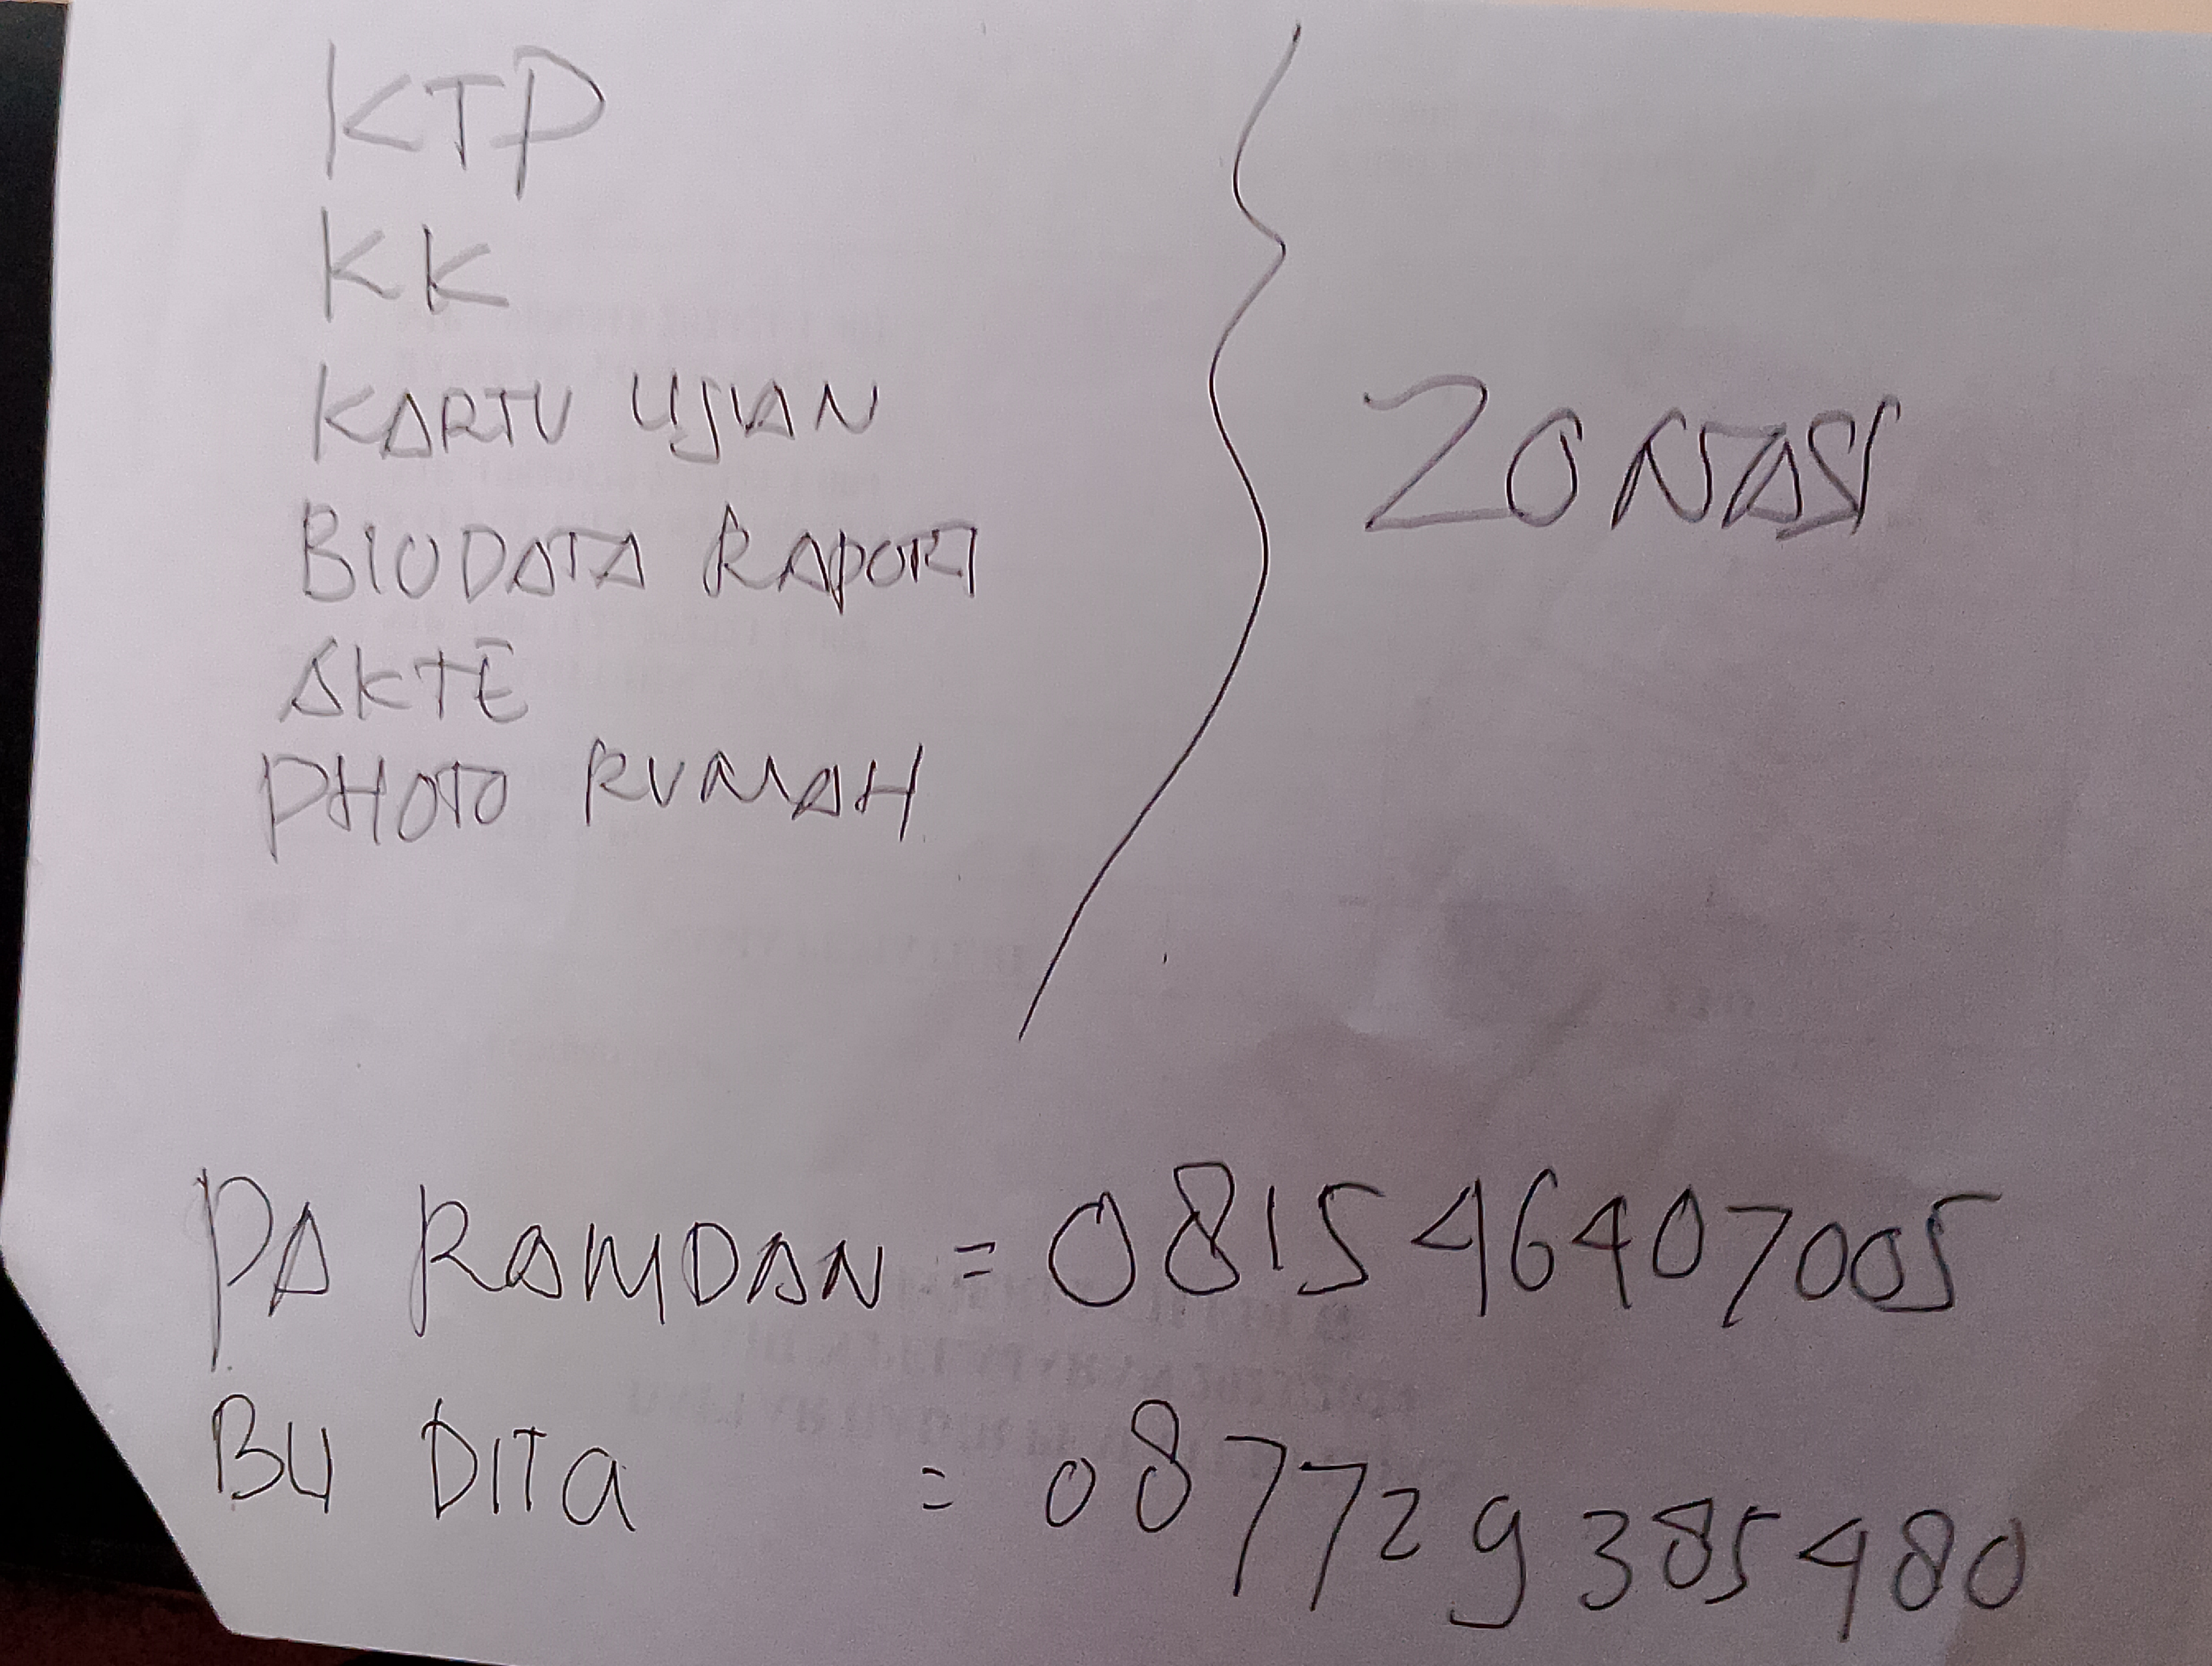 KTP
KK
KARTU UJIAN
BIODATA RAPORT
AKTE
PHOTO RUMAH
ZONASI
PA RAMDAN = 081546407005
BU DITA = 087729385480